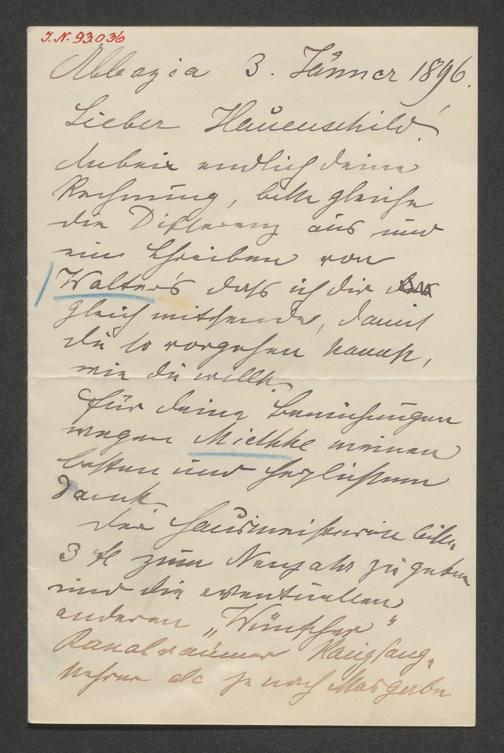 J.N. 93036
Abbazia 3. Jänner 1896.
Lieber Hauenschild!
Anbei endlich deine
Rechnung, bitte gleiche
die Differenz aus und
ein Schreiben von
Walter's daß ich dir
gleich mitsende, damit
du so vorgehen kannst,
wie du willst.
Für deine Bemühungen
wegen Miethke meinen
besten und herzlichsten
Dank
Der Hausmeisterin bitte
3 fl zum Neujahr zu geben
und die eventuellen
anderen „Wünscher"
Kanalräumer Rauchfang-
kehrer etc je nach Maßgabe